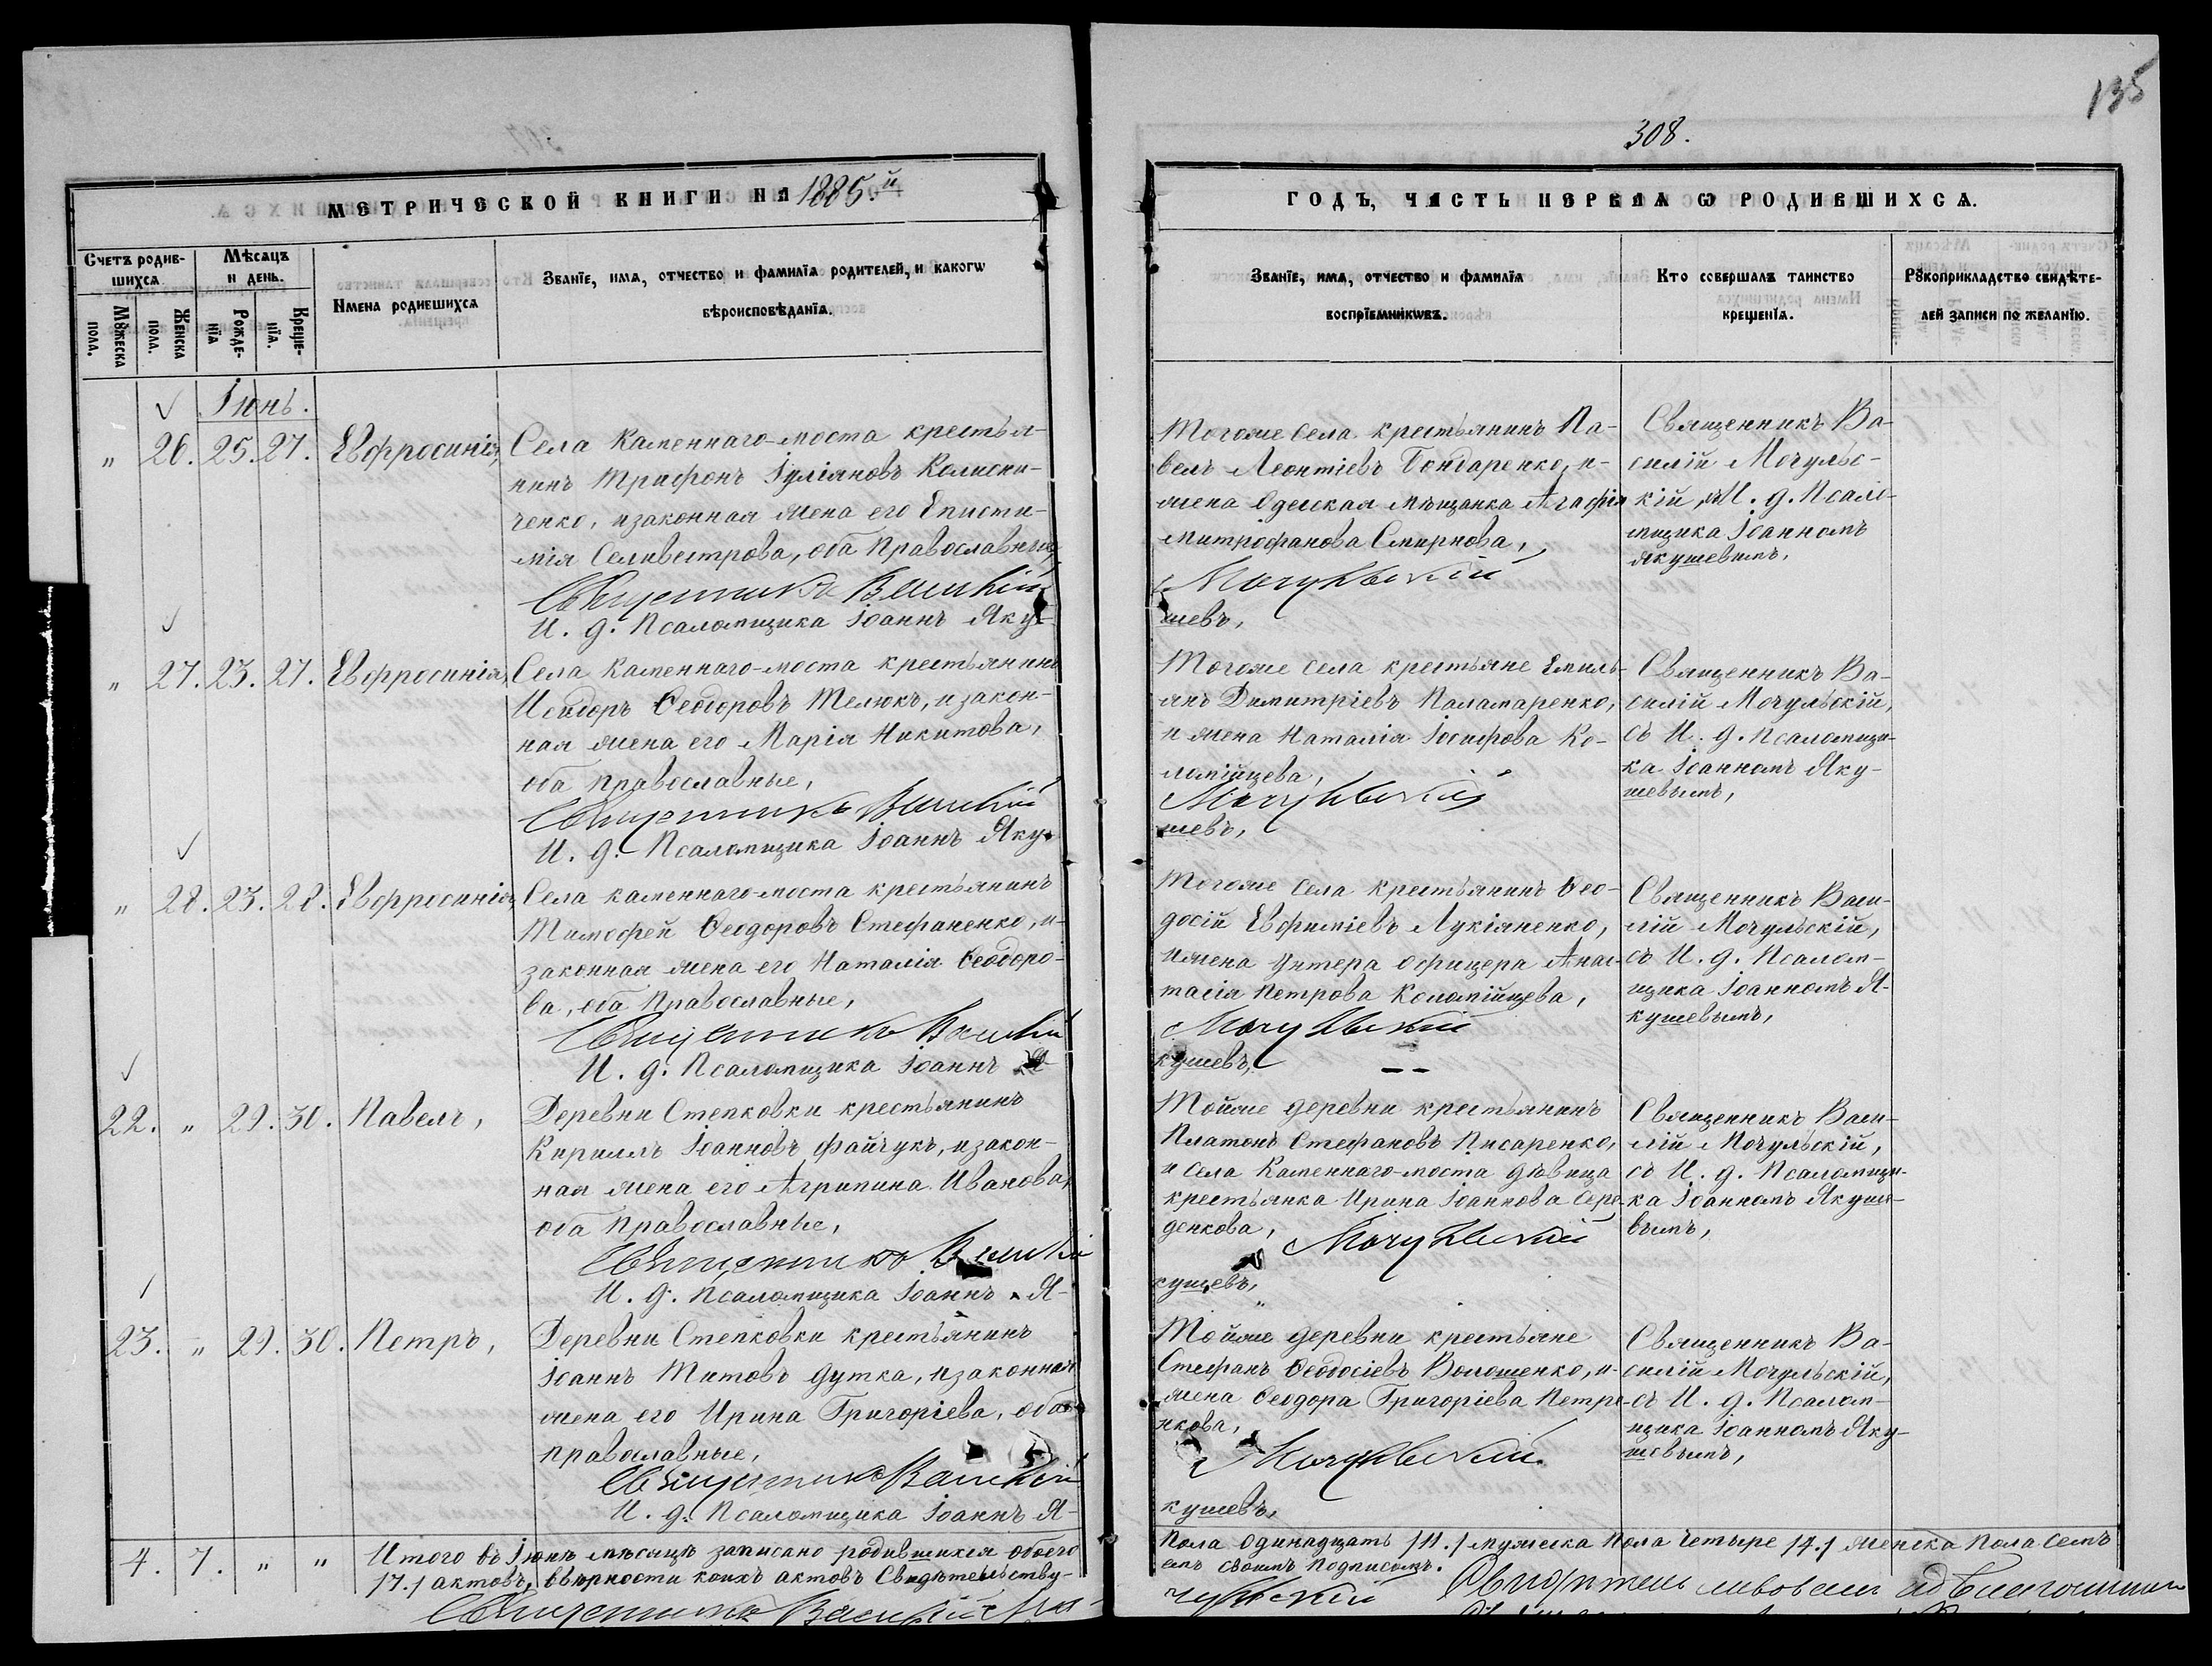 135
308.
МЕТРИЧЕСКОЙ КНИГИ НА 1885.й
ГОДЪ, ЧАСТЬ ПЕРВАѦ Ѡ РОДИВШИХСѦ.
Счетъ родив-
шихсѧ
Мѣсѧцъ
и день.
Мꙋжеска
пола.
Женска
пола.
Рожде-
нїѧ
Креще-
нїѧ.
Имена родившихсѧ
Званїе, имѧ, отчество и фамилїѧ родителей, и какогѡ
вѣроисповѣданїѧ.
Званїе, имѧ, отчество и фамилїѧ
воспрїемникѡвъ.
Кто совершалъ таинство
крещенїѧ.
Рꙋкоприкладство свидѣте-
лей записи по желанїю.
Іюнь.
" 26. 25. 27. Евфросинія,
Села Каменнаго-моста крестья-
нинъ Трифонъ Іуліановъ Колисни-
ченко, изаконная жена его Еписти-
мія Селивестрова, оба Православные,
Священникъ Василій
И. д. Псаломщика Іоаннъ Яку-
Тогоже села крестьянинъ Па-
велъ Леонтіевъ Бондаренко, и-
жена Одесская мѣщанка Агафія
Митрофанова Смирнова,
Мочульскій
шевъ,
Священникъ Ва-
силій Мочульс-
кій, И. д. Псало-
мщика Іоанномъ
Якушевымъ,
" 27. 23. 27. Евфросинія,
Села Каменнаго-моста крестьянинъ
Исидоръ Ѳеодоровъ Телюкъ, изакон-
ная жена его Марія Никитова,
оба православные,
Священникъ Василій
И. д. Псаломщика Іоаннъ Яку-
Тогоже села крестьяне Емиль-
янъ Димитріевъ Паламаренко,
и жена Наталія Іосифова Ко-
ломійцева,
Мочульскій
шевъ,
Священникъ Ва-
силій Мочульскій,
съ И. д. Псаломщи-
ка Іоанномъ Яку-
шевымъ,
" 28. 23. 28. Евфросинія,
Села каменнаго-моста крестьянинъ
Тимофей Ѳеодоровъ Стефаненко, и-
законная жена его Наталія Ѳеодоро-
ва, оба Православные,
Священникъ Василій
И. д. Псаломщика Іоаннъ Я-
Тогоже села крестьянинъ Ѳео-
досій Евфиміевъ Лукіяненко,
ижена Унтера офицера Анас-
тасія Петрова Коломійцева,
Мочульскій
кушевъ,
Священникъ Васи-
лій Мочульскій,
съ И. д. Псалом-
щика Іоанномъ Я-
кушевымъ,
22. " 29. 30. Павелъ,
Деревни Степковки крестьянинъ
Кириллъ Іоанновъ Файчукъ, изакон-
ная жена его Агрипина Иванова,
оба Православные,
Священникъ Василій
И. д. Псаломщика Іоаннъ Я-
Тойже деревни крестьянинъ
Платонъ Стефановъ Писаренко,
и села Каменнаго-моста дѣвица
крестьянка Ирина Іоаннова Сере-
денкова,
Мочульскій
кушевъ,
Священникъ Васи-
лій Мочульскій,
съ И. д. Псаломщи-
ка Іоанномъ Якуше-
вымъ,
23. " 29. 30. Петръ,
Деревни Степковки крестьянинъ
Іоаннъ Титовъ Дутка, изаконная
жена его Ирина Григоріева, оба
православные,
Священникъ Василій
И. д. Псаломщика Іоаннъ Я-
Тойже деревни крестьяне
Стефанъ Ѳеодосіевъ Волошенко, и-
жена Ѳеодора Григоріева Петре-
нкова,
Мочульскій
кушевъ,
Священникъ Ва-
силій Мочульскій,
съ И. д. Псалом-
щика Іоанномъ Яку-
шевымъ,
4. 7. " " Итого въ Іюнѣ мѣсяцѣ записано родившихся обоего
пола одинадцать /11./ мужеска Пола четыре /4./ женска Пола семь
/7./ актовъ, ввѣрности коихъ актовъ Свидѣтельству-
емъ своимъ Подписомъ.
Священникъ Василій Мо-
чульскій